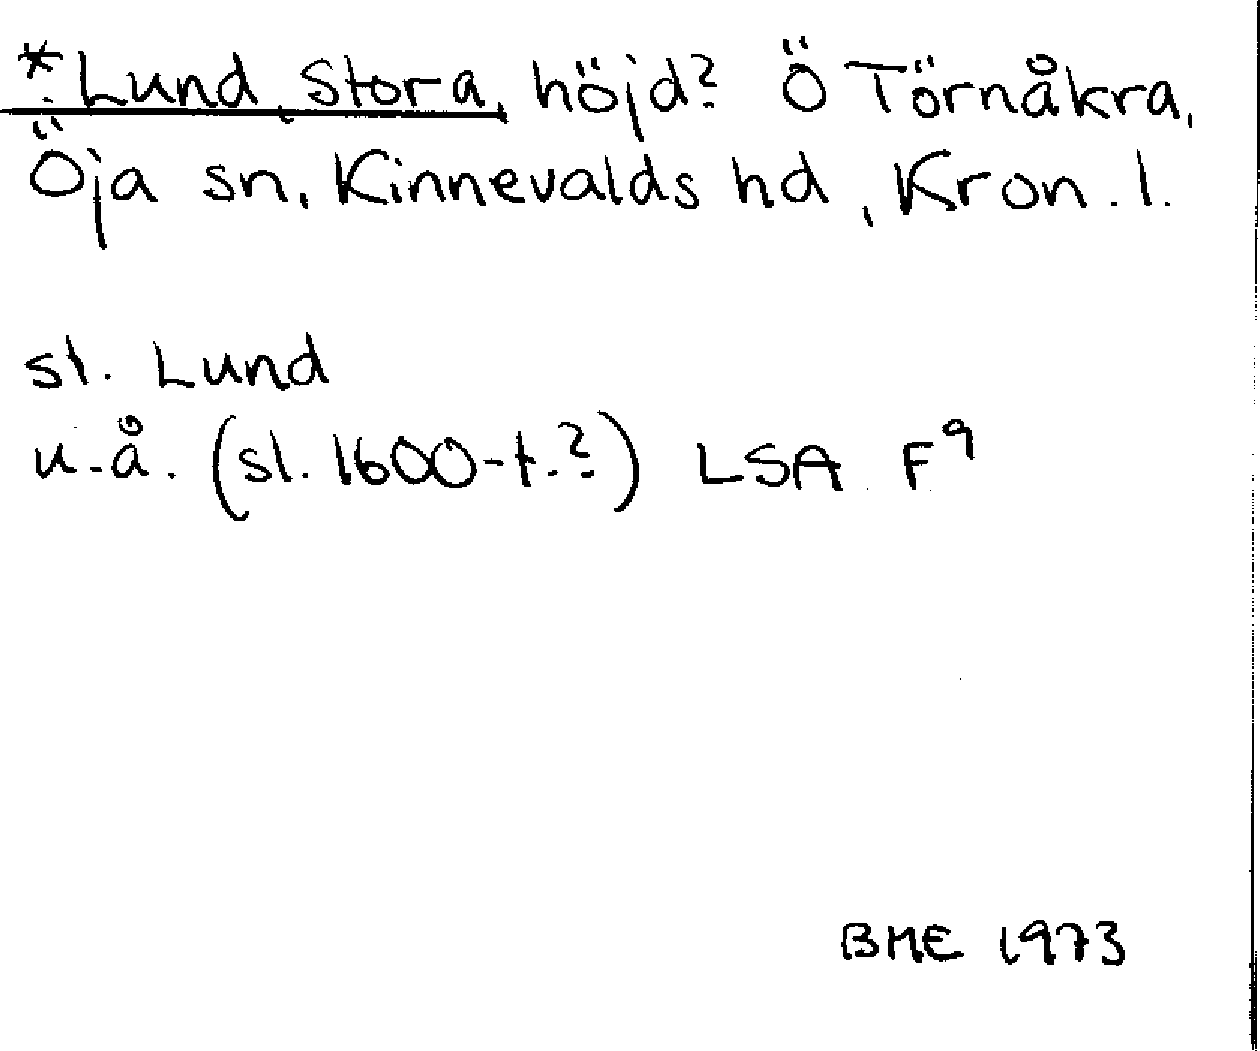 *Lund, Stora, höjd? Ö Törnåkra,
Öja sn, Kinnevalds hd, Kron. l.
st. Lund
u.å. (sl. 1600-t.?) LSA F⁹
BME 1973